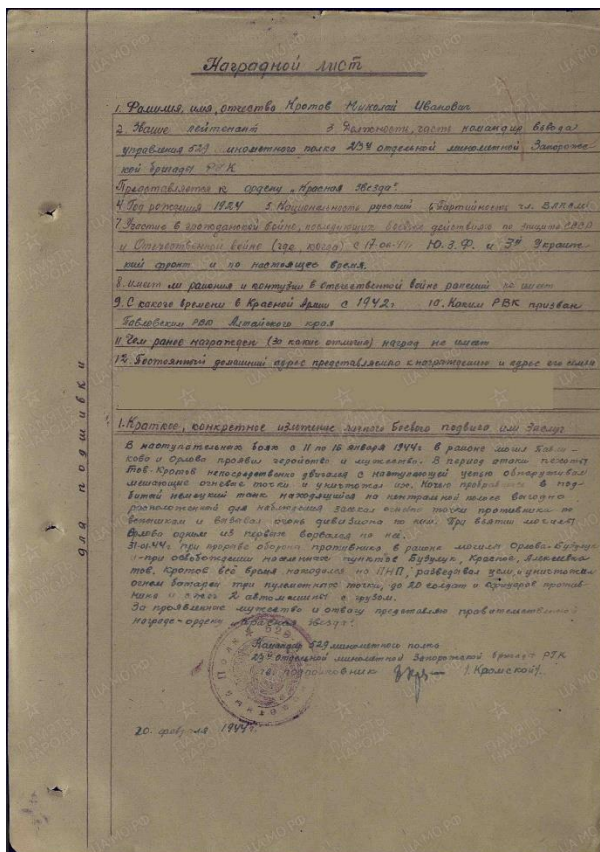 Наградной лист
1. Фамилия, имя, отчество Кротов Николай Иванович
2. Звание лейтенант 3. Должность, часть командир взвода
управления 529 минометного полка 23й отдельной минометной Запорожс-
кой бригады РГК
Представляется к ордену „Красная Звезда“.
4. Год рождения 1924 5. Национальность русский 6 Партийность чл. ВЛКСМ
7. Участие в гражданской войне, последующих боевых действиях по защите СССР
и Отечественной войне (где, когда) Ю.З.Ф. и 3й Украин-
ский фронт и по настоящее время.
8. имеет ли ранения и контузии в отечественной войне ранений не имеет
9. С какого времени в Красной Армии с 1942г 10. Каким РВК призван
Павловским РВК Алтайского края
11. Чем ранее награжден (за какие отличия) наград не имеет
12. Постоянный домашний адрес представляемого к награждению и адрес его семьи
1. Краткое, конкретное изложение личного боевого подвига или заслуг
В наступательных боях с 11 по 16 января 1944г в районе могил
и Орлова проявил геройство и мужество. В период атаки пехоты
Тов. Кротов непосредственно двигался с наступающей цепью обнаруживал
мешающие огневые точки и уничтожал их. Ночью в под-
битый немецкий танк находящийся на нейтральной полосе выгодно
расположенный для наблюдения засекал огневые точки противника по
вспышкам и вызывал огонь дивизиона по ним. При взятии могилы
Орлова одним из первых ворвался на неё.
31.01.44г при прорыве обороны противника в районе могилы Орлова-
и при освобождении населенных пунктов Бузулук, Красное,
тов. Кротов всё время находился на ПНП, разведывал цели и уничтожал
огнем батареи три пулеметные точки, до 20 солдат и офицеров против-
ника и сжег 2 автомашины с грузом.
За проявленные мужество и отвагу представляю правительственной
награде - ордену „Красная Звезда“.
Командир 529 минометного полка
23й отдельной минометной Запорожской бригады РГК
подполковник /Кромской/.
20. февраля 1944г.
для подшивки
ЦАМО.РФ
ПАМЯТЬ
НАРОДА